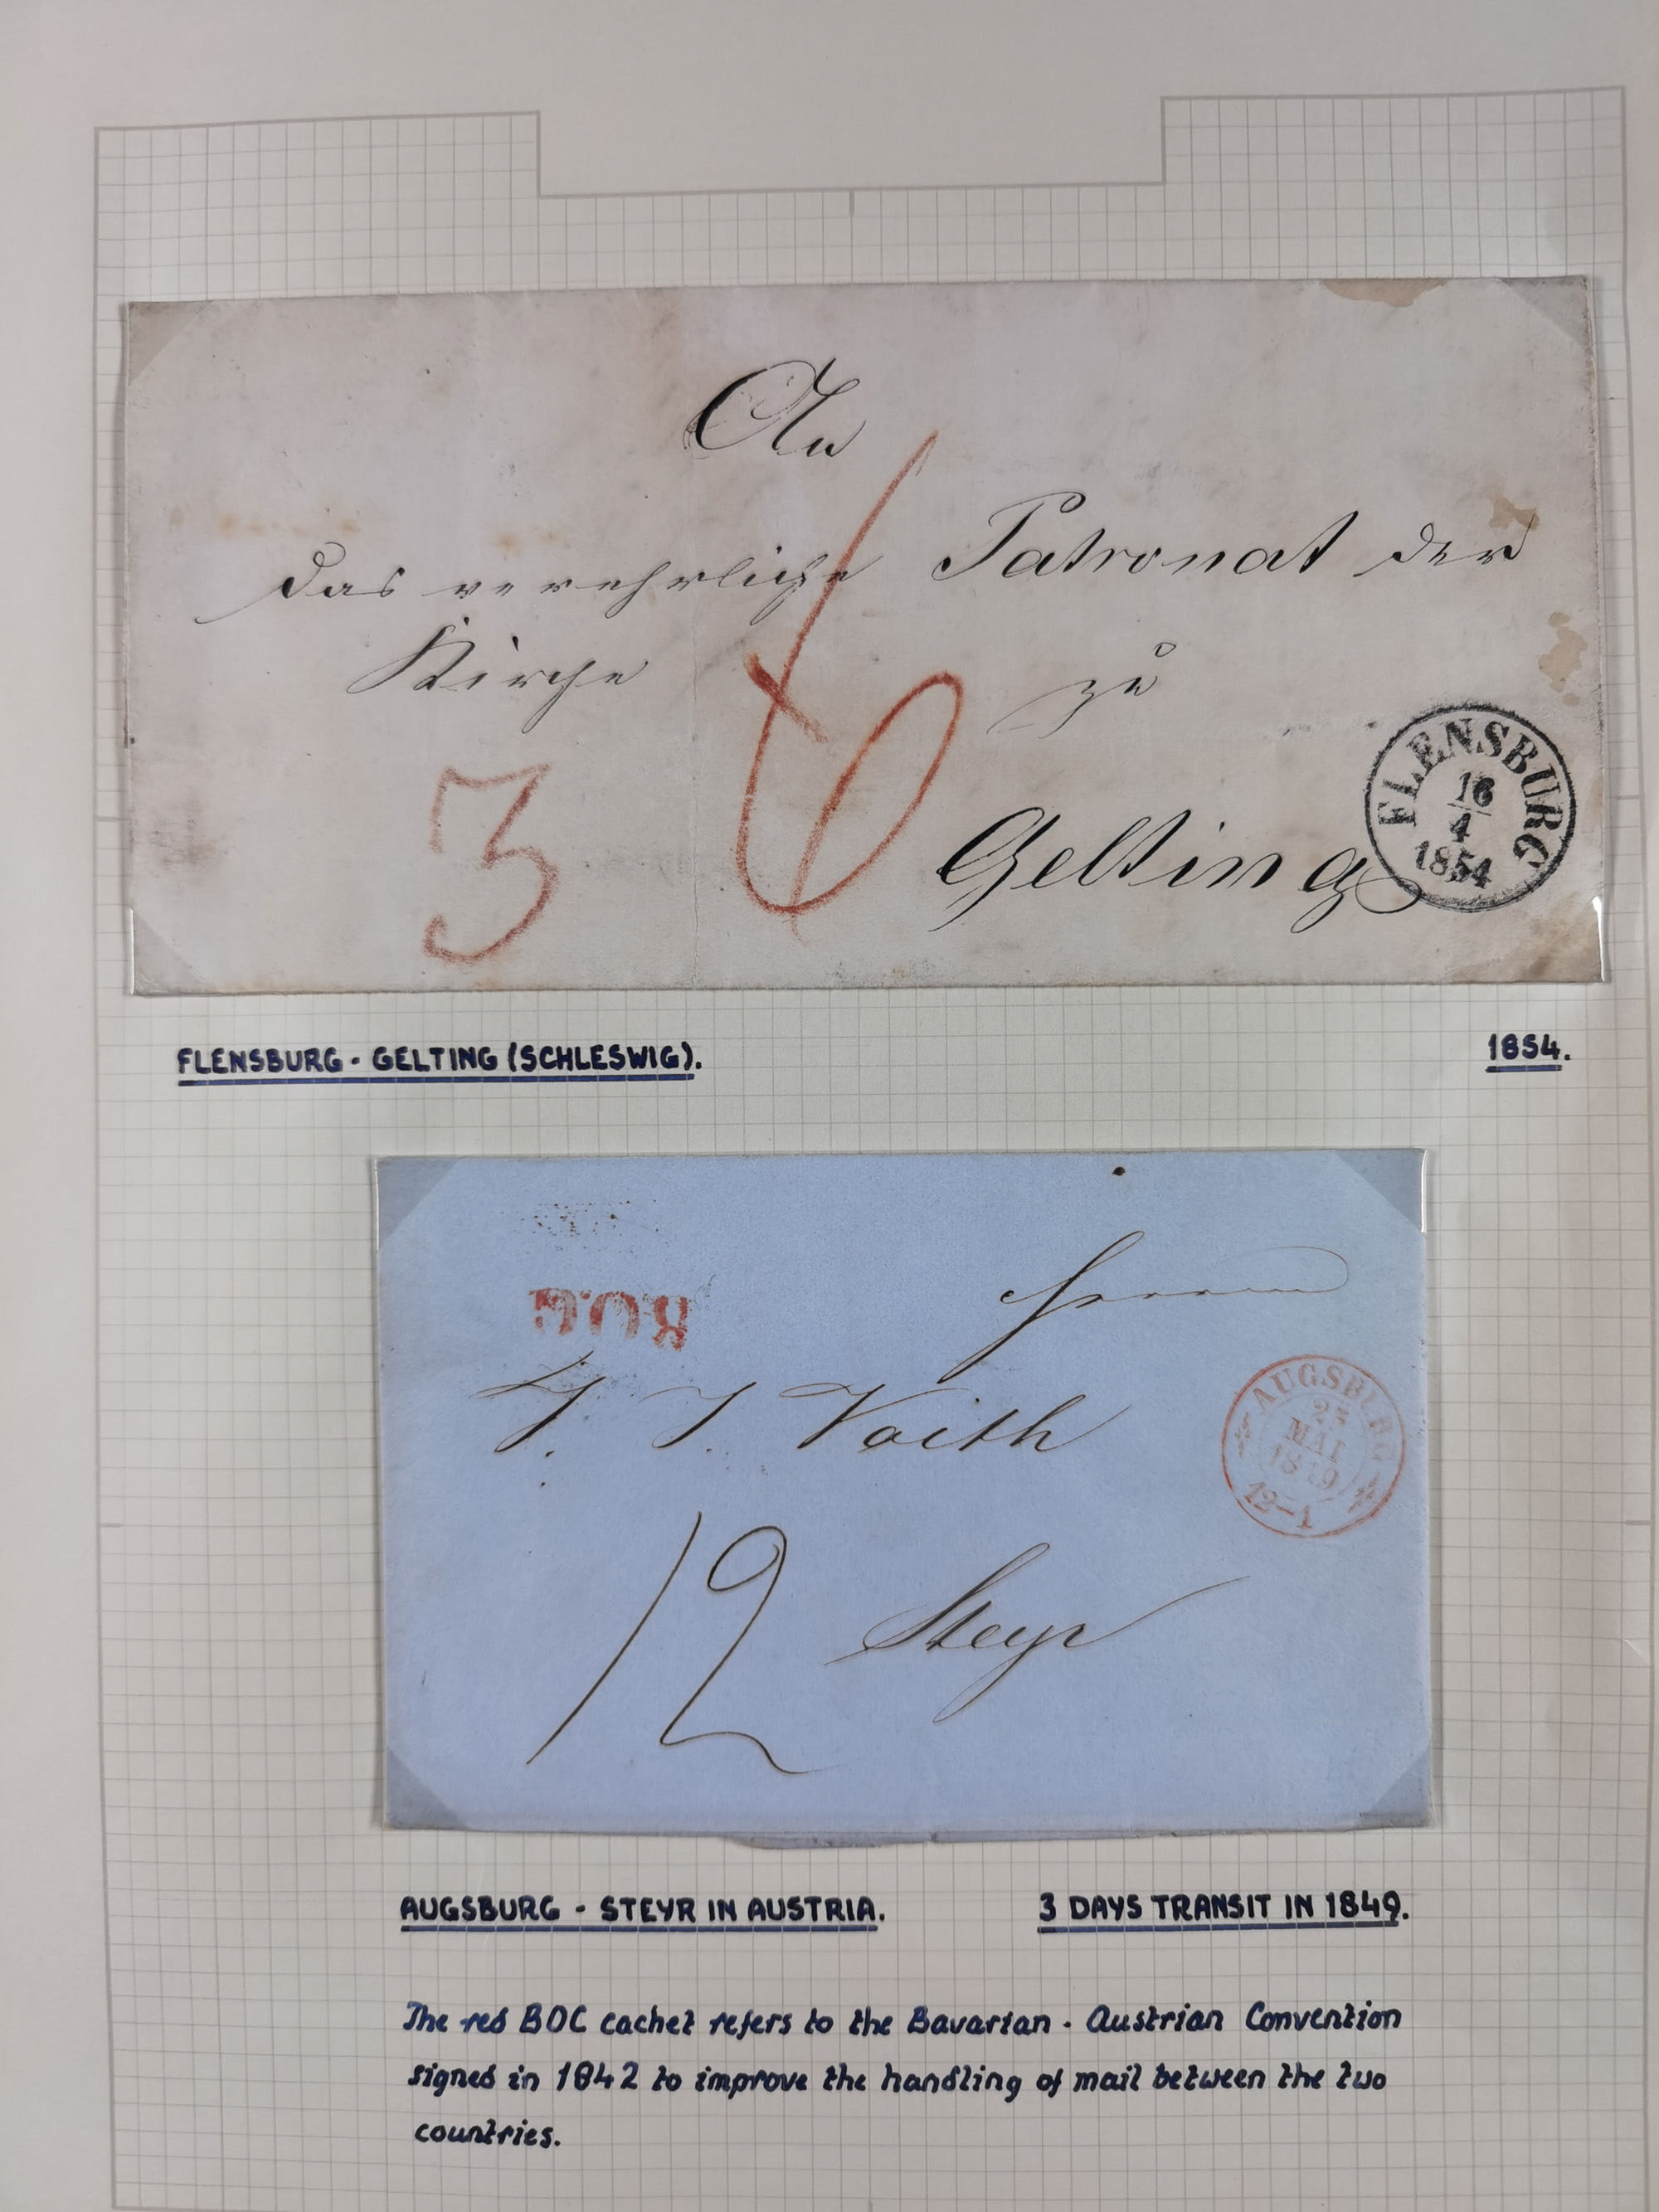 An
das verehrliche Patronat der
Kirche zu
6
3
Gelting
FLENSBURG
16
4
1854
FLENSBURG - GELTING (SCHLESWIG). 1854.
Herrn
J. J. Voith
AUGSBURG
MAI
1849
12-1
12
Steyr
AUGSBURG - STEYR IN AUSTRIA. 3 DAYS TRANSIT IN 1849.
The red BOC cachet refers to the Bavarian - Austrian Convention
signed in 1842 to improve the handling of mail between the two
countries.